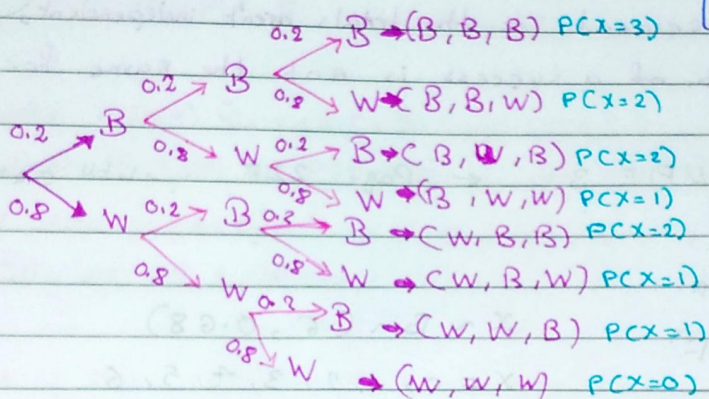 0.2 B → (B, B, B) P(X=3)
0.2 B
0.8 W → (B, B, W) P(X=2)
0.2 B
0.8 W 0.2 B → (B, W, B) P(X=2)
0.8 W → (B, W, W) P(X=1)
0.8 W 0.2 B 0.2 B → (W, B, B) P(X=2)
0.8 W → (W, B, W) P(X=1)
0.8 W 0.2 B → (W, W, B) P(X=1)
0.8 W → (W, W, W) P(X=0)